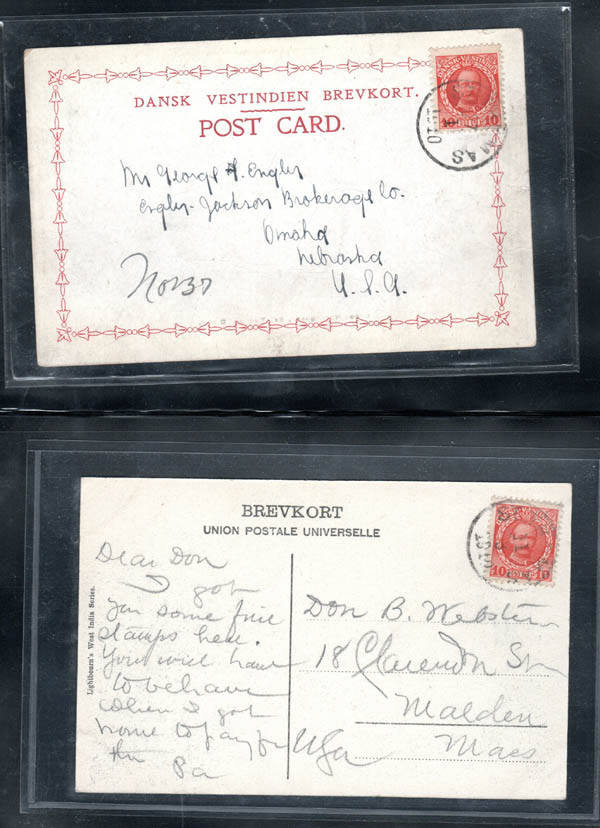 DANSK VESTINDIEN BREVKORT.
POST CARD.
DANSK-VESTINDIEN
10 10
MAS
Mr George A. Engler
Engler-Jackson Brokerage Co.
Omaha
Nebraska
U.S.A.
BREVKORT
UNION POSTALE UNIVERSELLE
10 10
Lightbourn's West India Series.
Dear Don
I got
you some fine
stamps here.
You will have
to behave
when I get
home to pay for
the
Pa
Don B. Webster
18 Clarendon St
Malden
Mass
USA